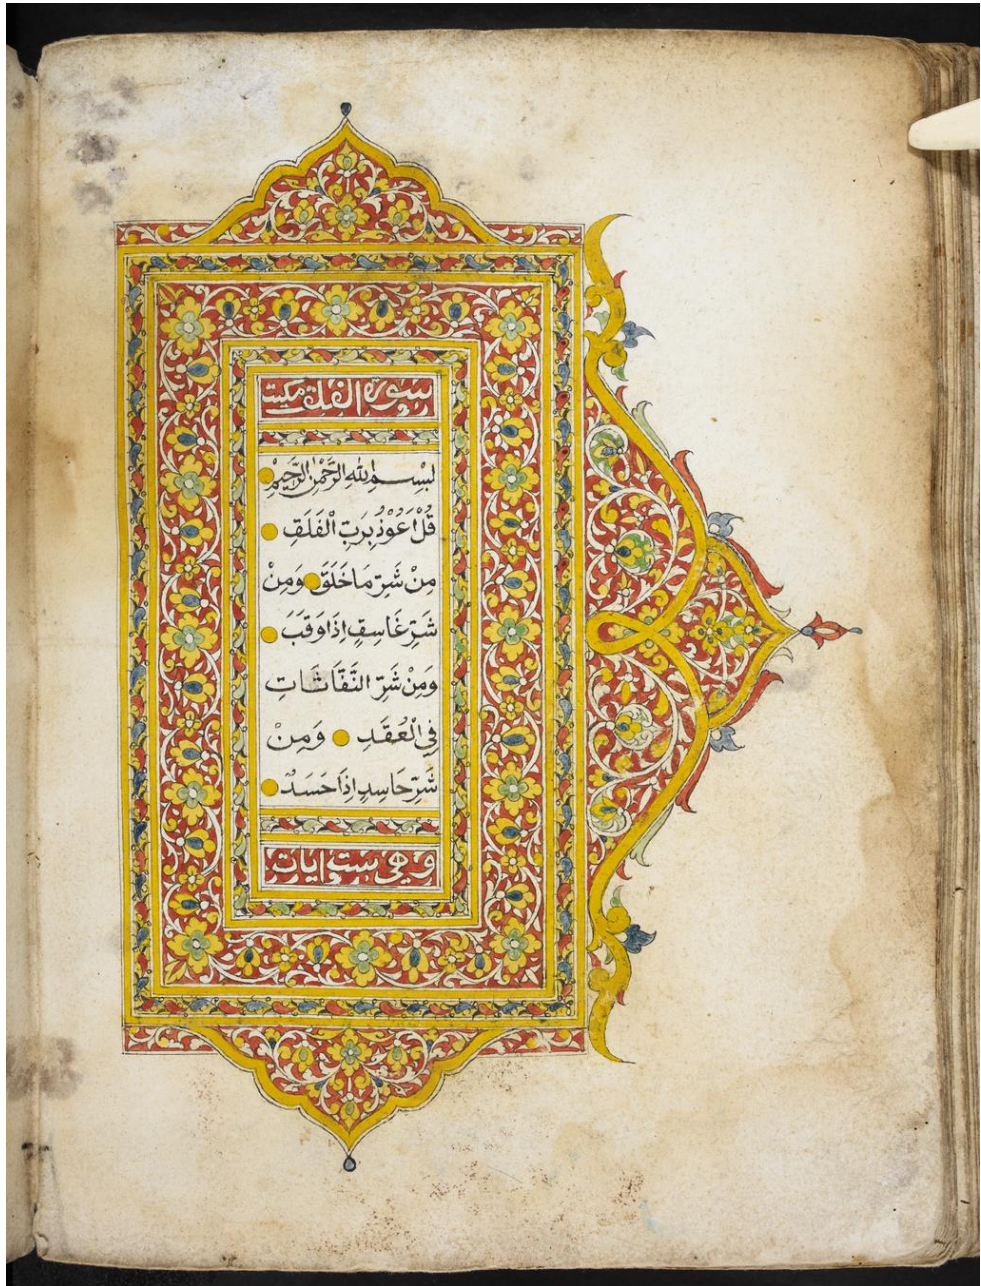 سورة الفلق مكية
بِسْمِ اللهِ الرَّحْمٰنِ الرَّحِيْمِ
قُلْ اَعُوْذُ بِرَبِّ الْفَلَقِ
مِنْ شَرِّ مَا خَلَقَ وَمِنْ
شَرِّ غَاسِقٍ اِذَا وَقَبَ
وَمِنْ شَرِّ النَّفَّاثَاتِ
فِي الْعُقَدِ وَمِنْ
شَرِّ حَاسِدٍ اِذَا حَسَدَ
وهي ست ايات